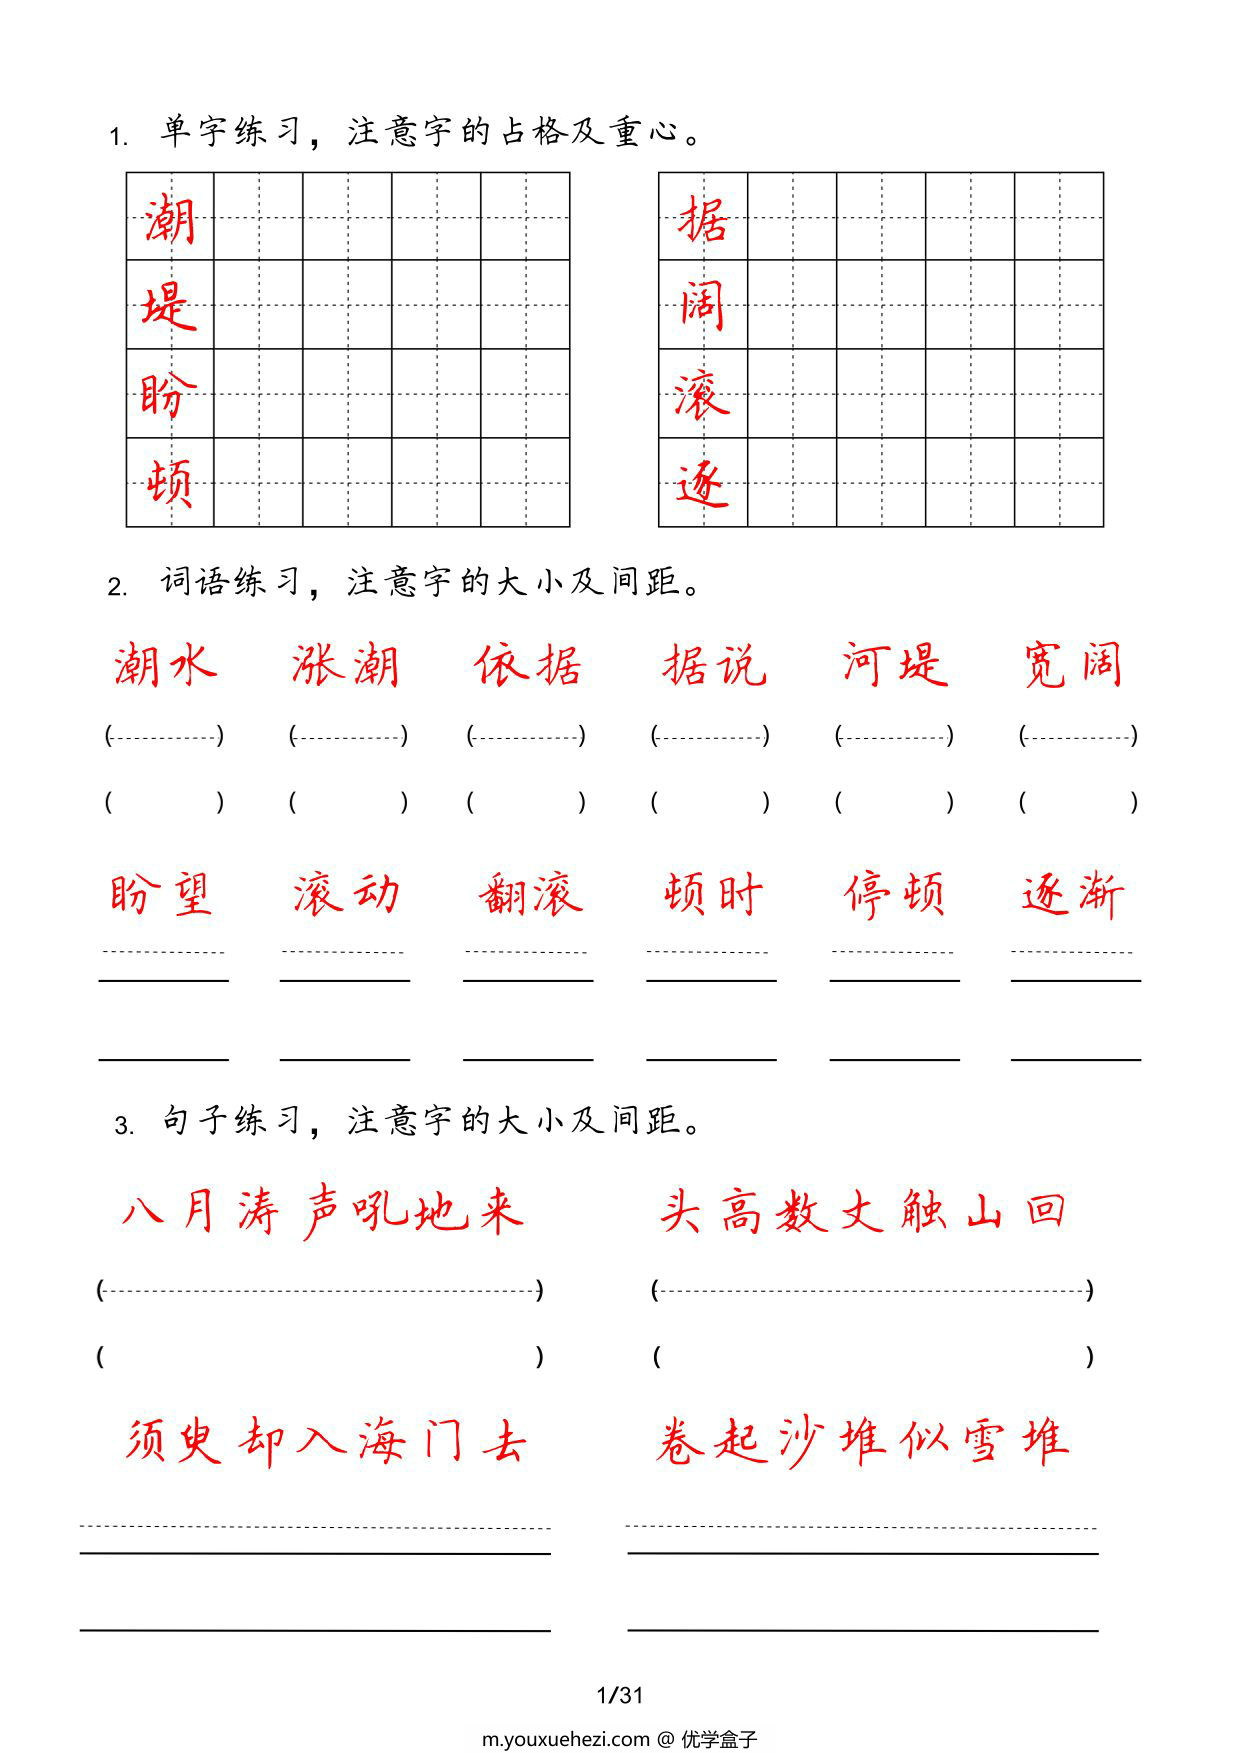 1. 单字练习，注意字的占格及重心。
潮 据
堤 阔
盼 滚
顿 逐
2. 词语练习，注意字的大小及间距。
潮水 涨潮 依据 据说 河堤 宽阔
( ) ( ) ( ) ( ) ( ) ( )
( ) ( ) ( ) ( ) ( ) ( )
盼望 滚动 翻滚 顿时 停顿 逐渐
3. 句子练习，注意字的大小及间距。
八月涛声吼地来 头高数丈触山回
( ) ( )
( ) ( )
须臾却入海门去 卷起沙堆似雪堆
1/31
m.youxuehezi.com @ 优学盒子